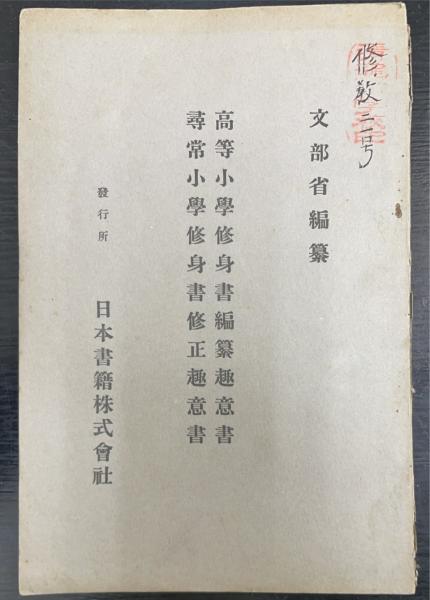 修教二一号
文部省編纂
高等小學修身書編纂趣意書
尋常小學修身書修正趣意書
發行所
日本書籍株式會社